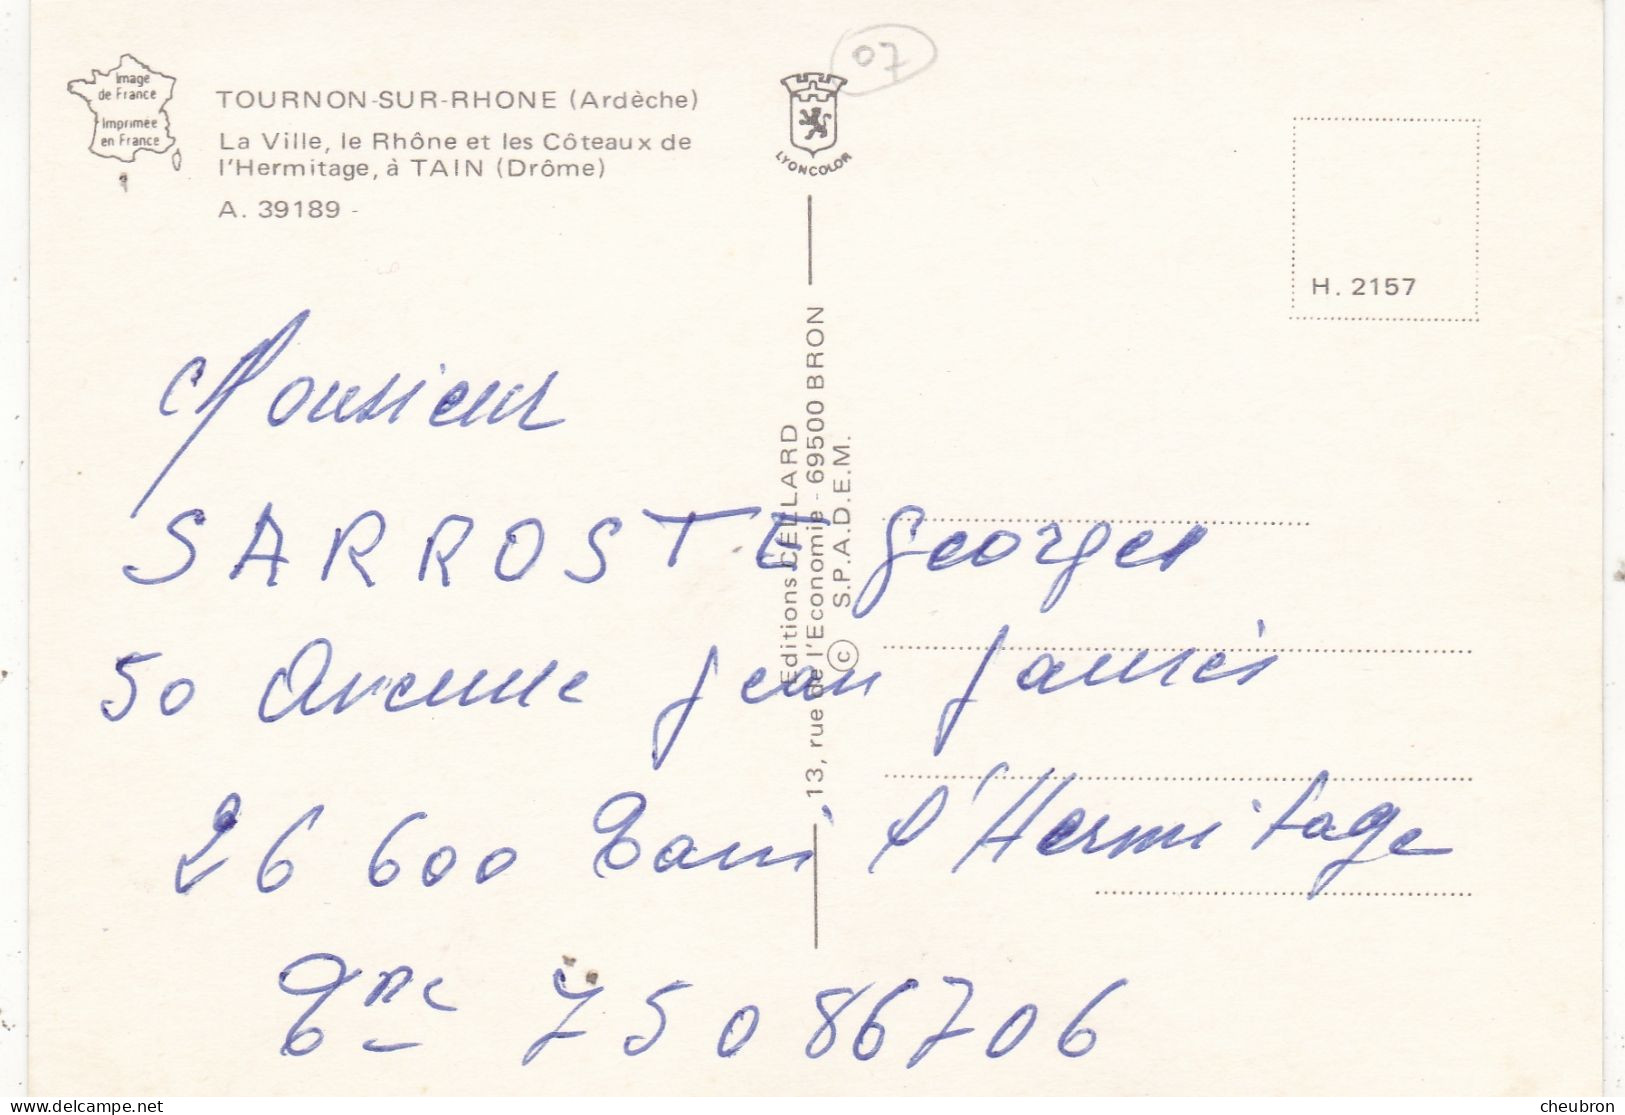 Image
de France
Imprimée
en France
TOURNON-SUR-RHONE (Ardèche)
La Ville, le Rhône et les Côteaux de
l'Hermitage, à TAIN (Drôme)
A. 39189 -
07
LYONCOLOR
H. 2157
Editions CELLARD
13, rue de l'Economie - 69500 BRON
© S.P.A.D.E.M.
Monsieur
SARROSTE Georges
50 Avenue Jean Jaurès
26 600 Tain l'Hermitage
Tne 75086706
delcampe.net
cheubron